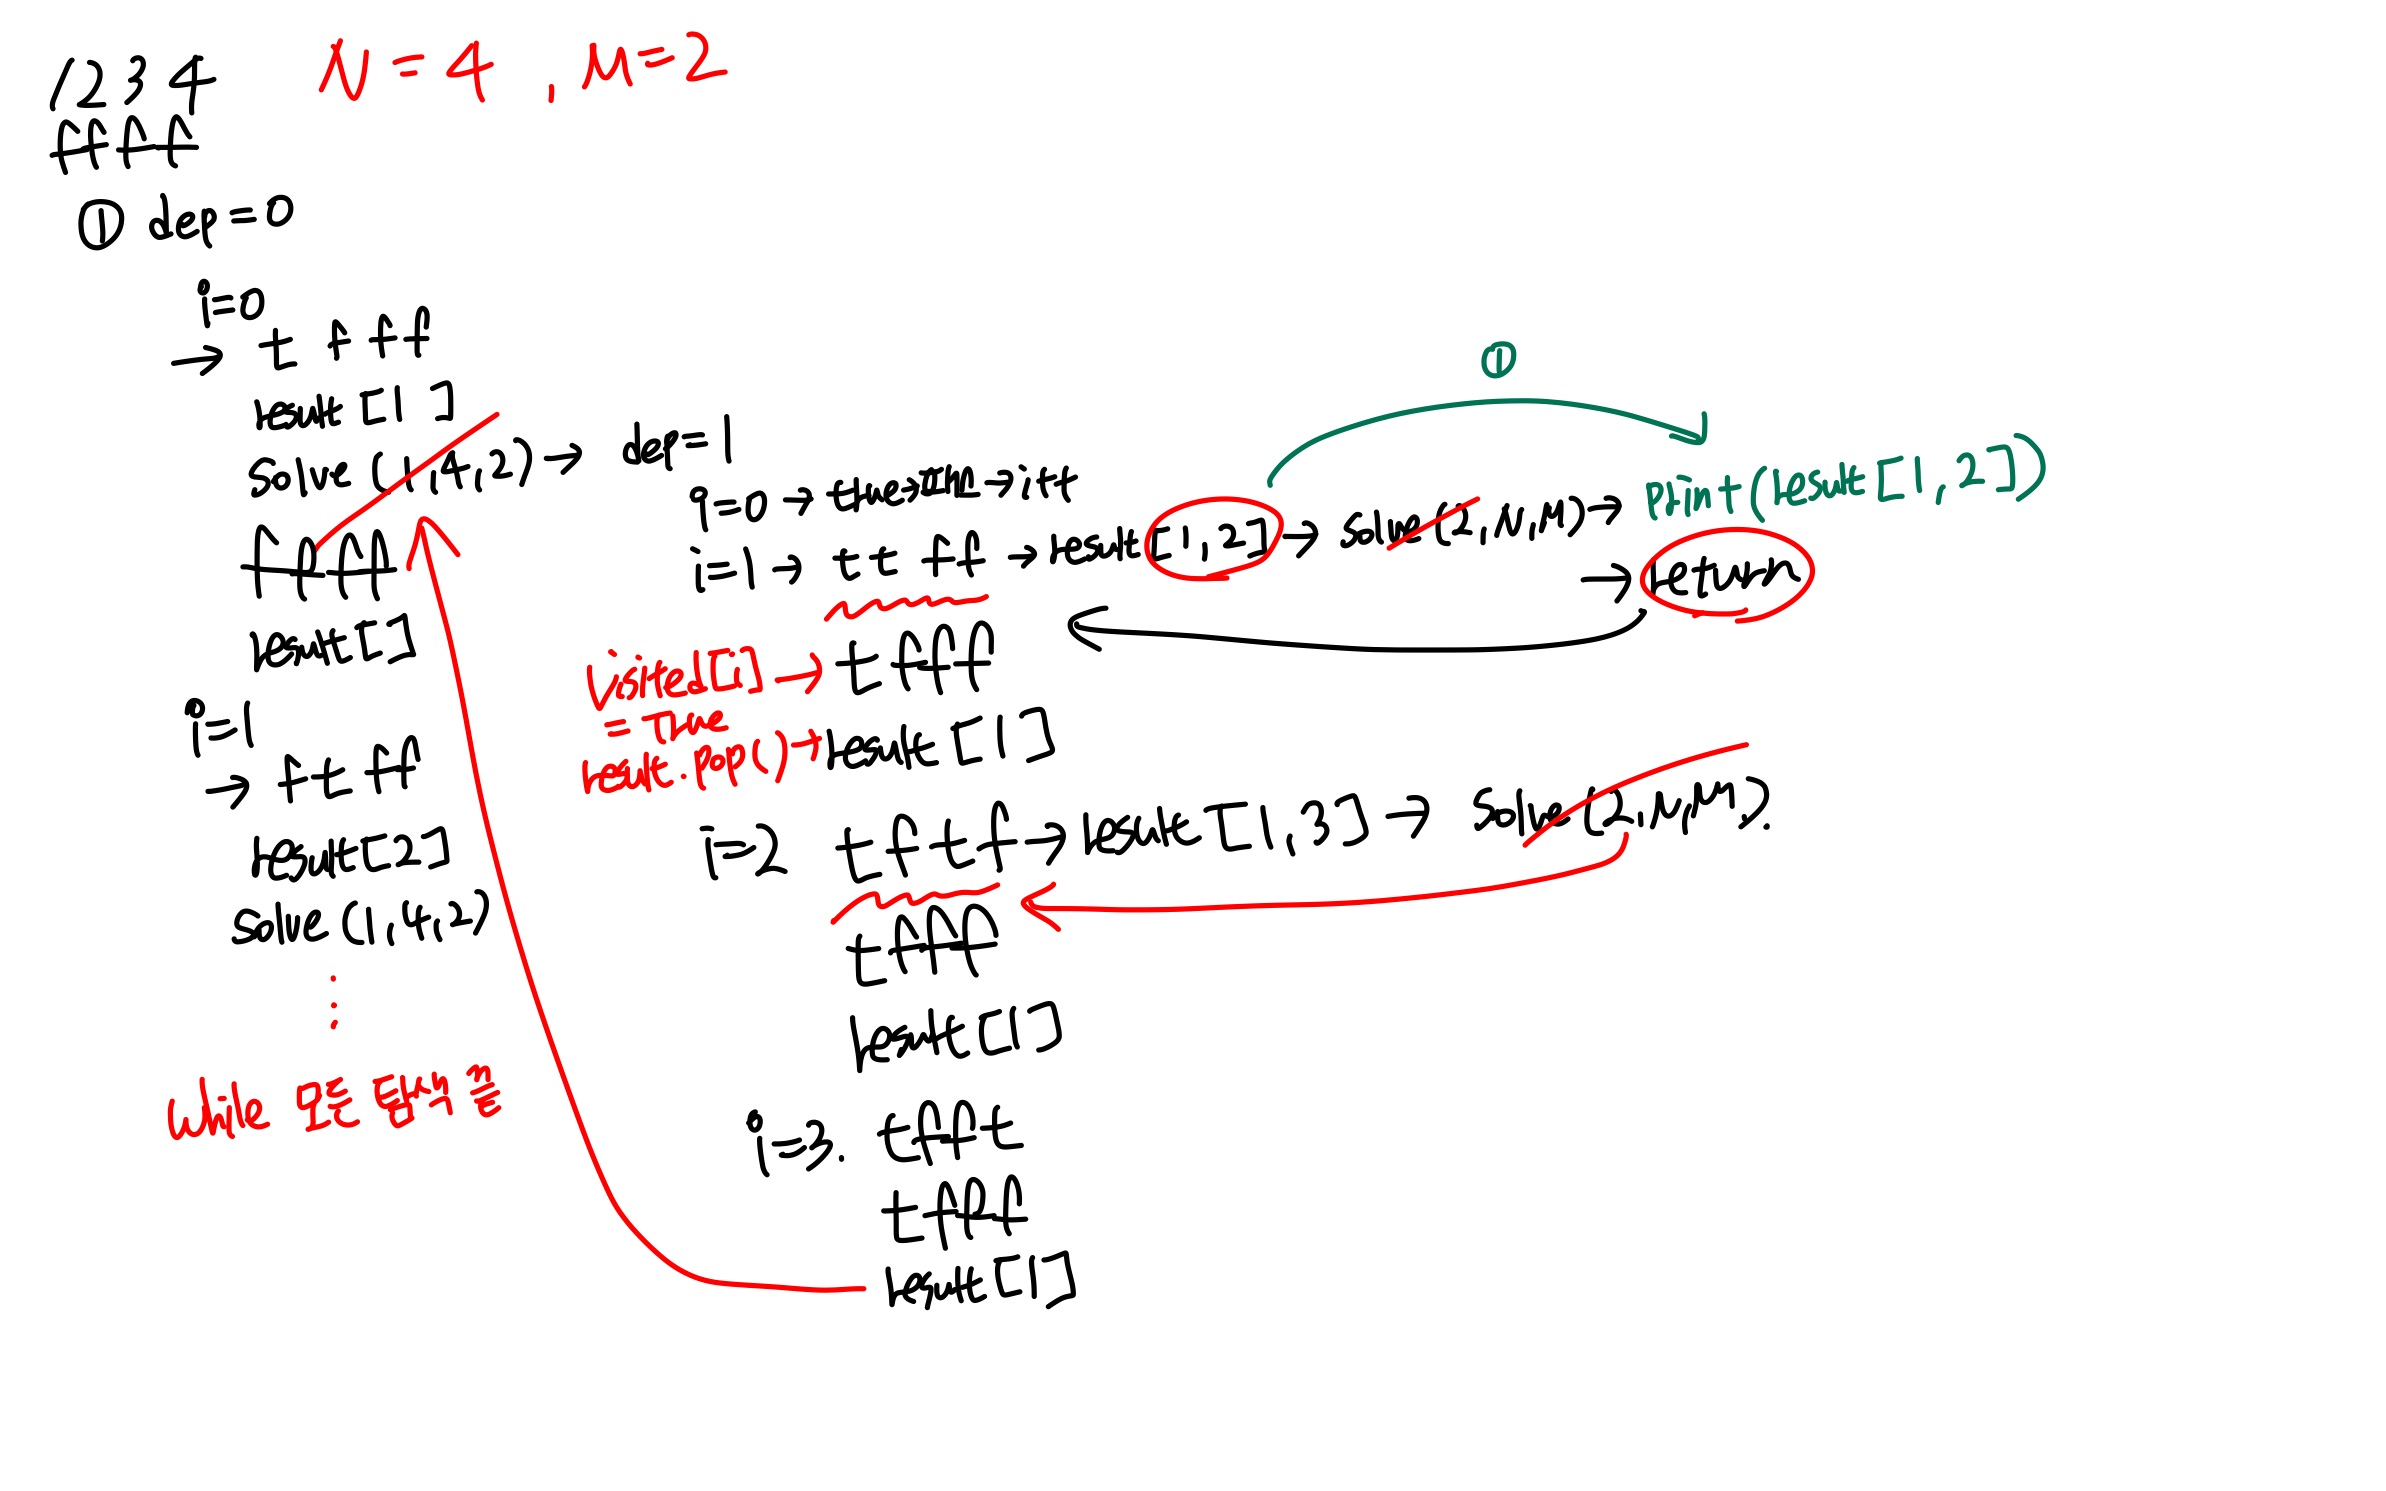 1 2 3 4
N = 4 , M = 2
f f f f
① dep = 0
i = 0
→ t f f f
result [1 ]
solve (1, 4, 2) → dep = 1
i = 0 → true → → i++
i = 1 → t t f f → result [1, 2] → solve (2, N, M) → print(result [1, 2])
①
→ return
f f f f
result [ ]
visited[i] → t f f f
= True
result.pop() → result [1]
i = 1
→ f t f f
result [2]
solve (1, 4, 2)
i = 2 t f t f → result [1, 3] → solve (2, N, M).
t f f f
result [1]
while 모든
i = 3. t f f t
t f f f
result [1]